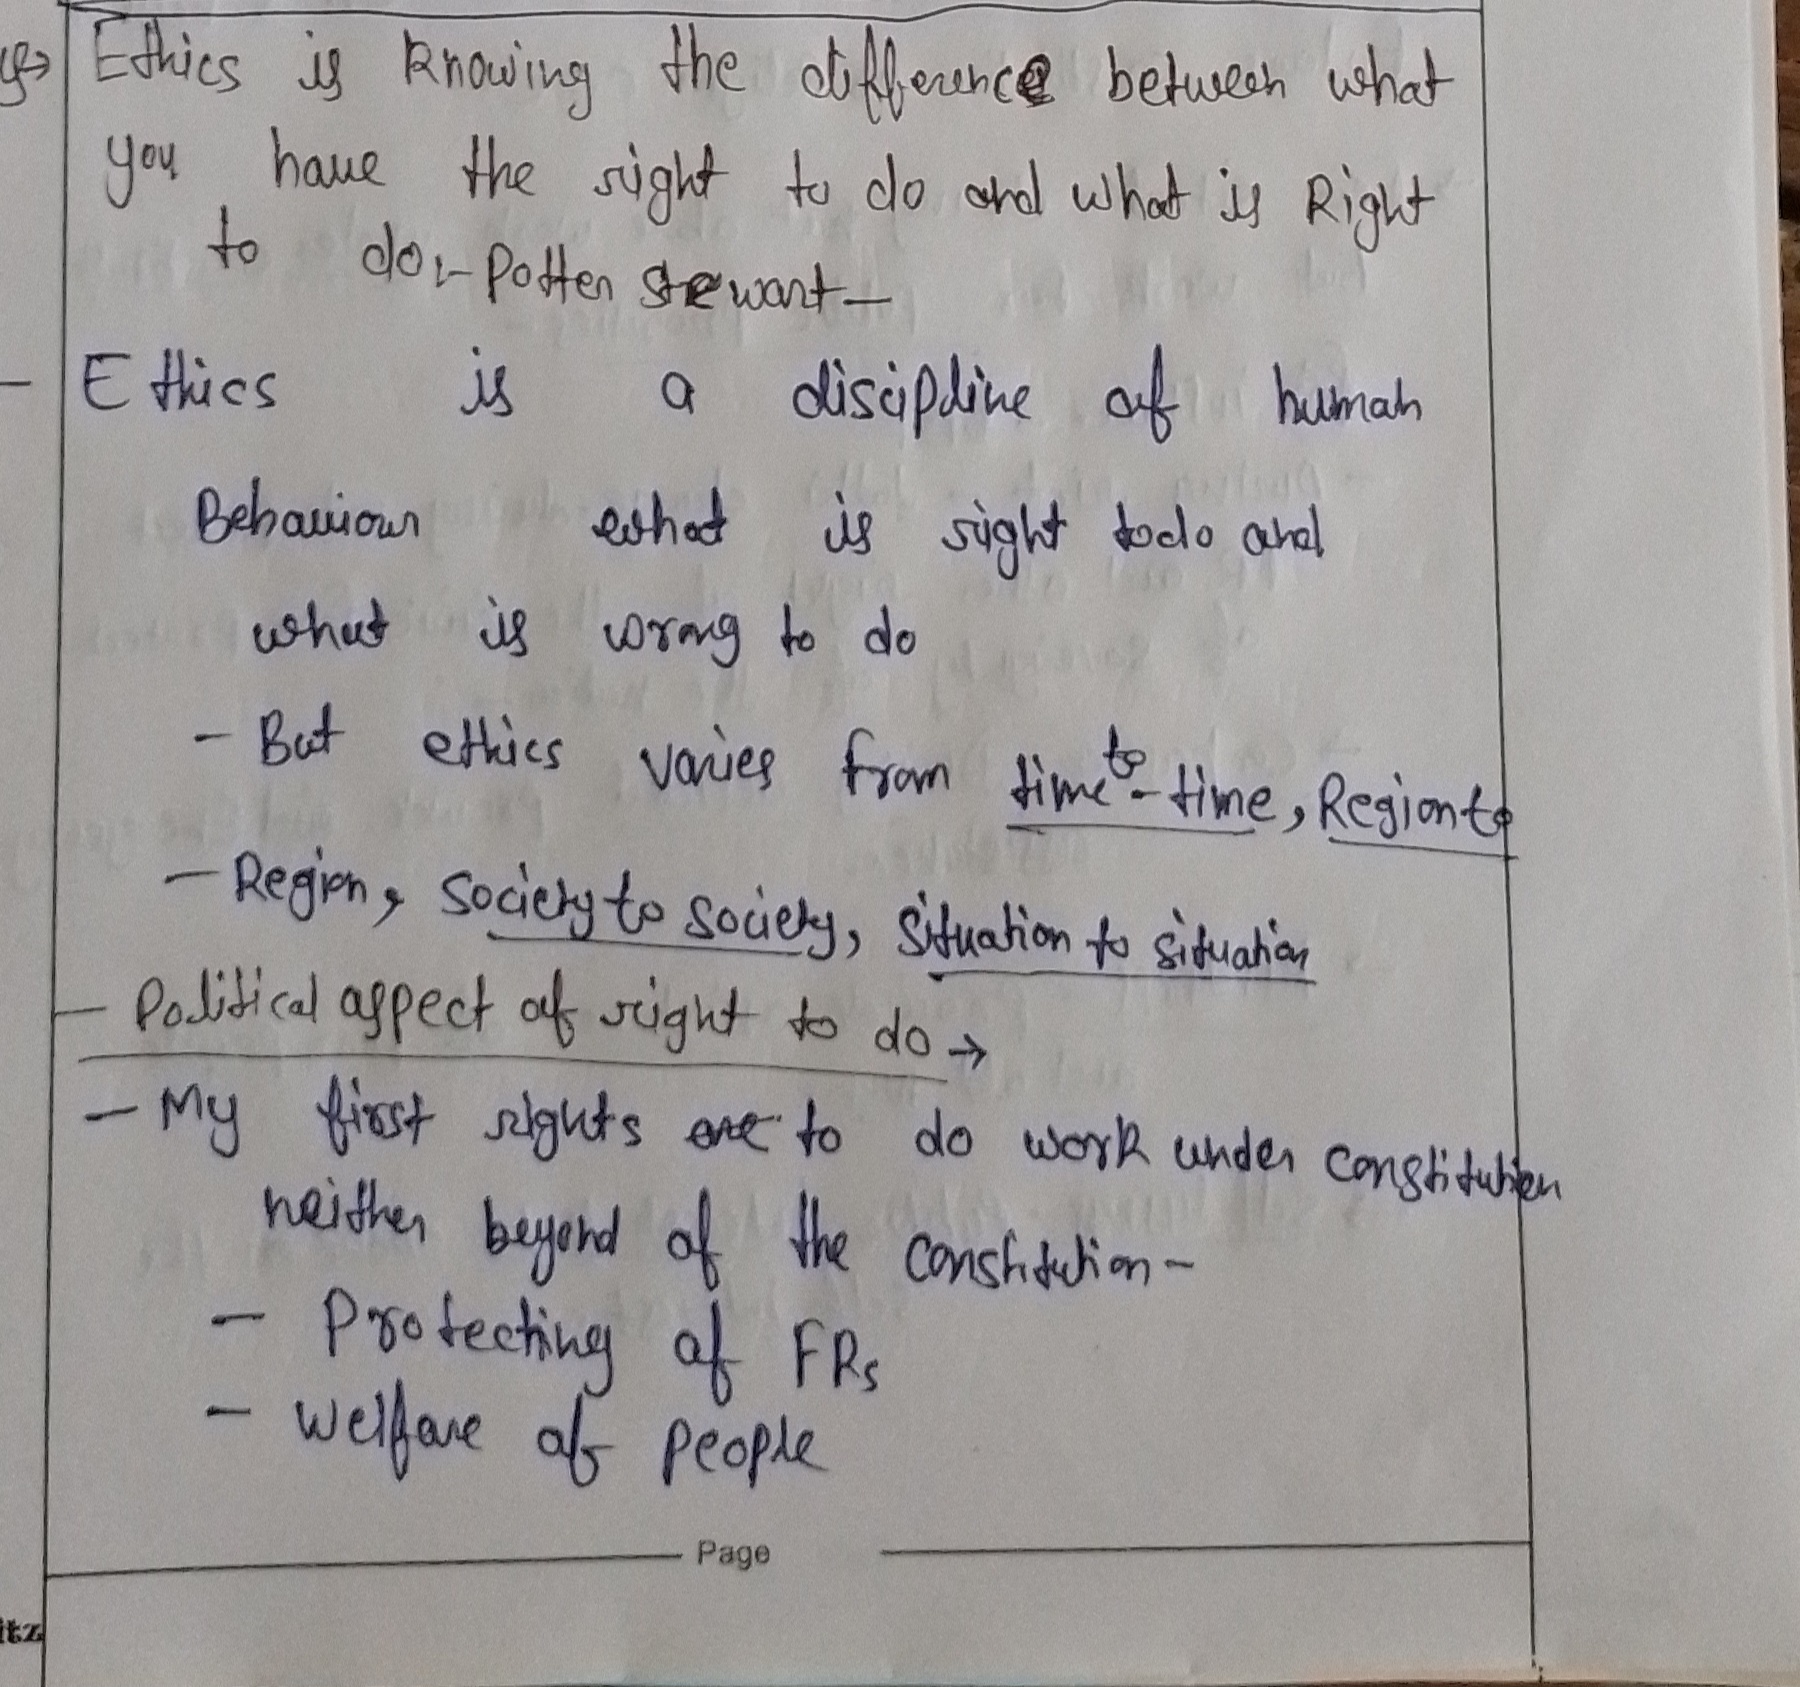 Ethics is knowing the difference between what
you have the right to do and what is Right
to do:- Potter Stewart -
- Ethics is a discipline of human
Behaviour what is right to do and
what is wrong to do
- But ethics varies from time to - time, Region to
- Region, Society to Society, Situation to situation
- Political aspect of right to do →
- My first rights are to do work under constitution
neither beyond of the constitution -
- Protecting of FRs
- Welfare of people
Page
itz